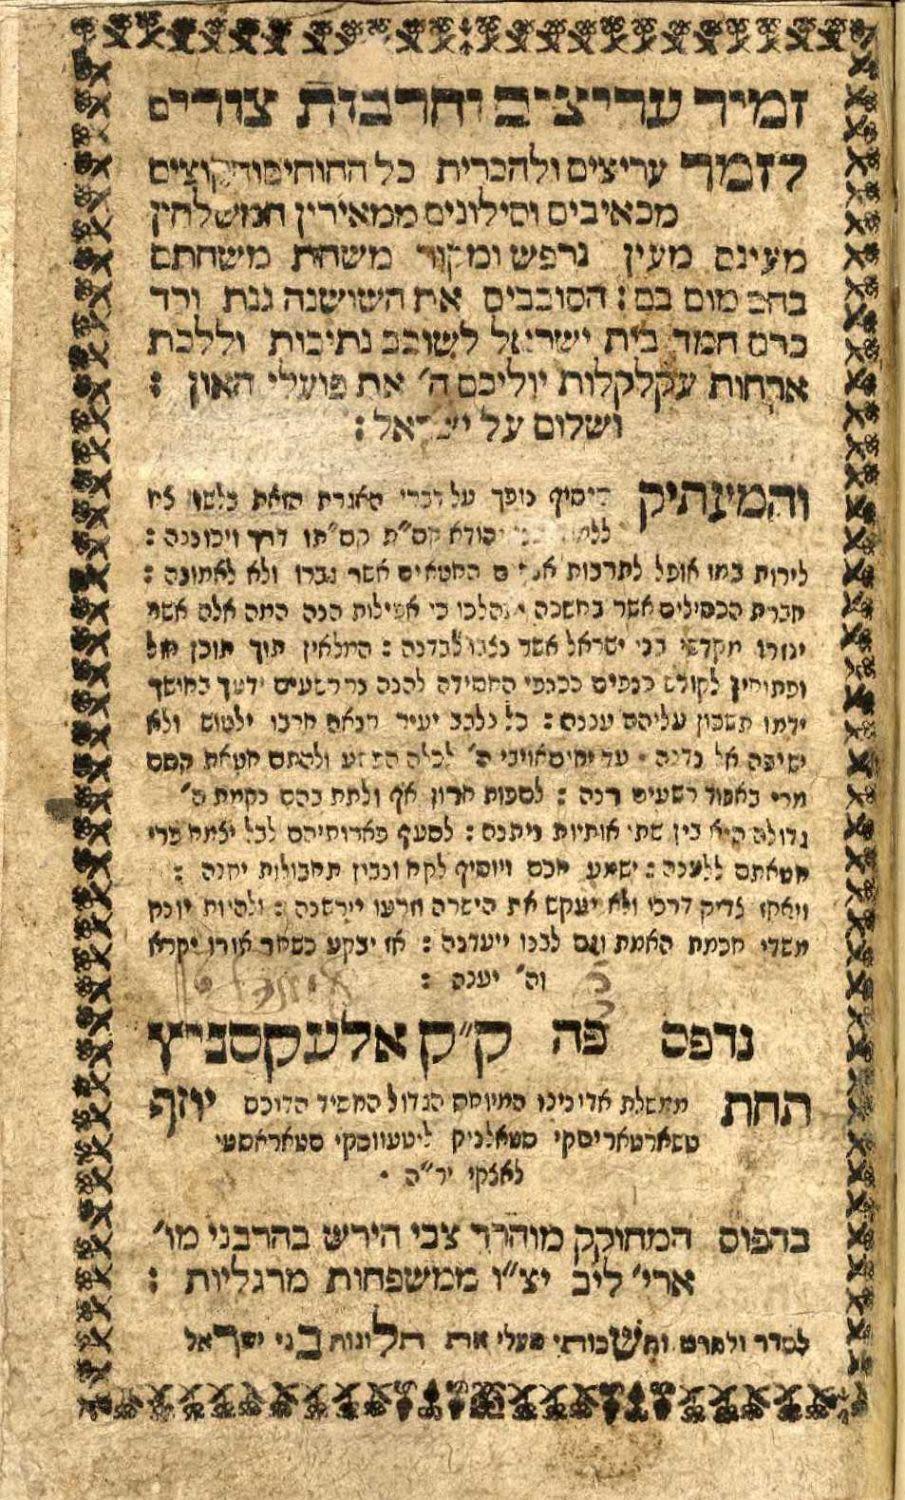 זמיר עריצים וחרבות צורים
לזמר עריצים ולהכרית כל החוחים והקוצים
מכאיבים וסילונים ממאירין המשלחין
מעינם מעין נרפש ומקור משחת משחתם
בהם מום בם : הסובבים את השושנה גנת ורד
כרם חמד בית ישראל לשובב נתיבות וללכת
ארחות עקלקלות יוליכם ה' את פועלי האון :
ושלום על ישראל :
והמעתיק הוסיף נופך על דברי האגרת הזאת בלשון
ללמד בני יהודא קס"ת קס"תו דרך ויכוננה :
לירות במו אופל לתרבות אנשים החטאים אשר גברו ולא לאמונה :
חברת הכסילים אשר בחשכה יתהלכו כי אפילות הנה המה אלה אשר
מקדשי בני ישראל אשר לבדנה : המלאין תוך תוכן חול
ופתוחין לקולט כנפים ככנפי החסידה להנה ורשעים ידמו בחושך
ידמו תשכון עליהם עננה : כל יעיר חרבו ילטוש ולא
ישיבה אל נדנה עד ה' לכלה הפשע ולהתם חטאת קסם
מרי באבוד רשעים רנה : לספות חרון אף ולתת בהם נקמת ה'
גדולה היא בין שתי אותיות ניתנה : לסעף פארותיהם לבל יצמח פרי
חטאתם ללענה : ישמע חכם ויוסיף לקח ונבון תחבולות יקנה :
ויאחז צדיק דרכו ולא יעקש את הישרה וזרעו יירשנה : ולהיות יונק
משדי חכמת האמת וגם לבנו ייעדנה : אז יבקע כשחר אורו יקרא
וה' יענה :
נדפס פה ק"ק אלעקסניץ
תחת ממשלת אדונינו המיוחס הגדול החסיד הדוכס יוזף
טשארטאריסקי סטאלניק ליטעווסקי סטאראסטי
לאצקי יר"ה
בדפוס המחוקק מוהרר צבי הירש בהרבני מו'
ארי' ליב יצ"ו ממשפחות מרגליות :
לסדר ולפרט והשכותי מעלי את תלונות בני ישראל